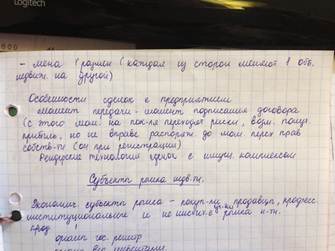 logitech
- мена (размен (каждая из сторон меняет 1 об.
недвиж. на другой)
Особенности сделок с предприятием
момент передачи - момент подписания договора
(с этого мом. на пок-ля переходят риски, возм. получ.
прибыль, но не вправе распоряж до мом. перех прав
собств-ти (он при регистрации)
технология сделок с имущ. комплексом
Субъекты рынка недв-ти.
Эконом субъекты рынка - покуп-ли, продавцы, професс
институциональные и не инстит. уч-ки рынка н-ти.
орган гос. регистр